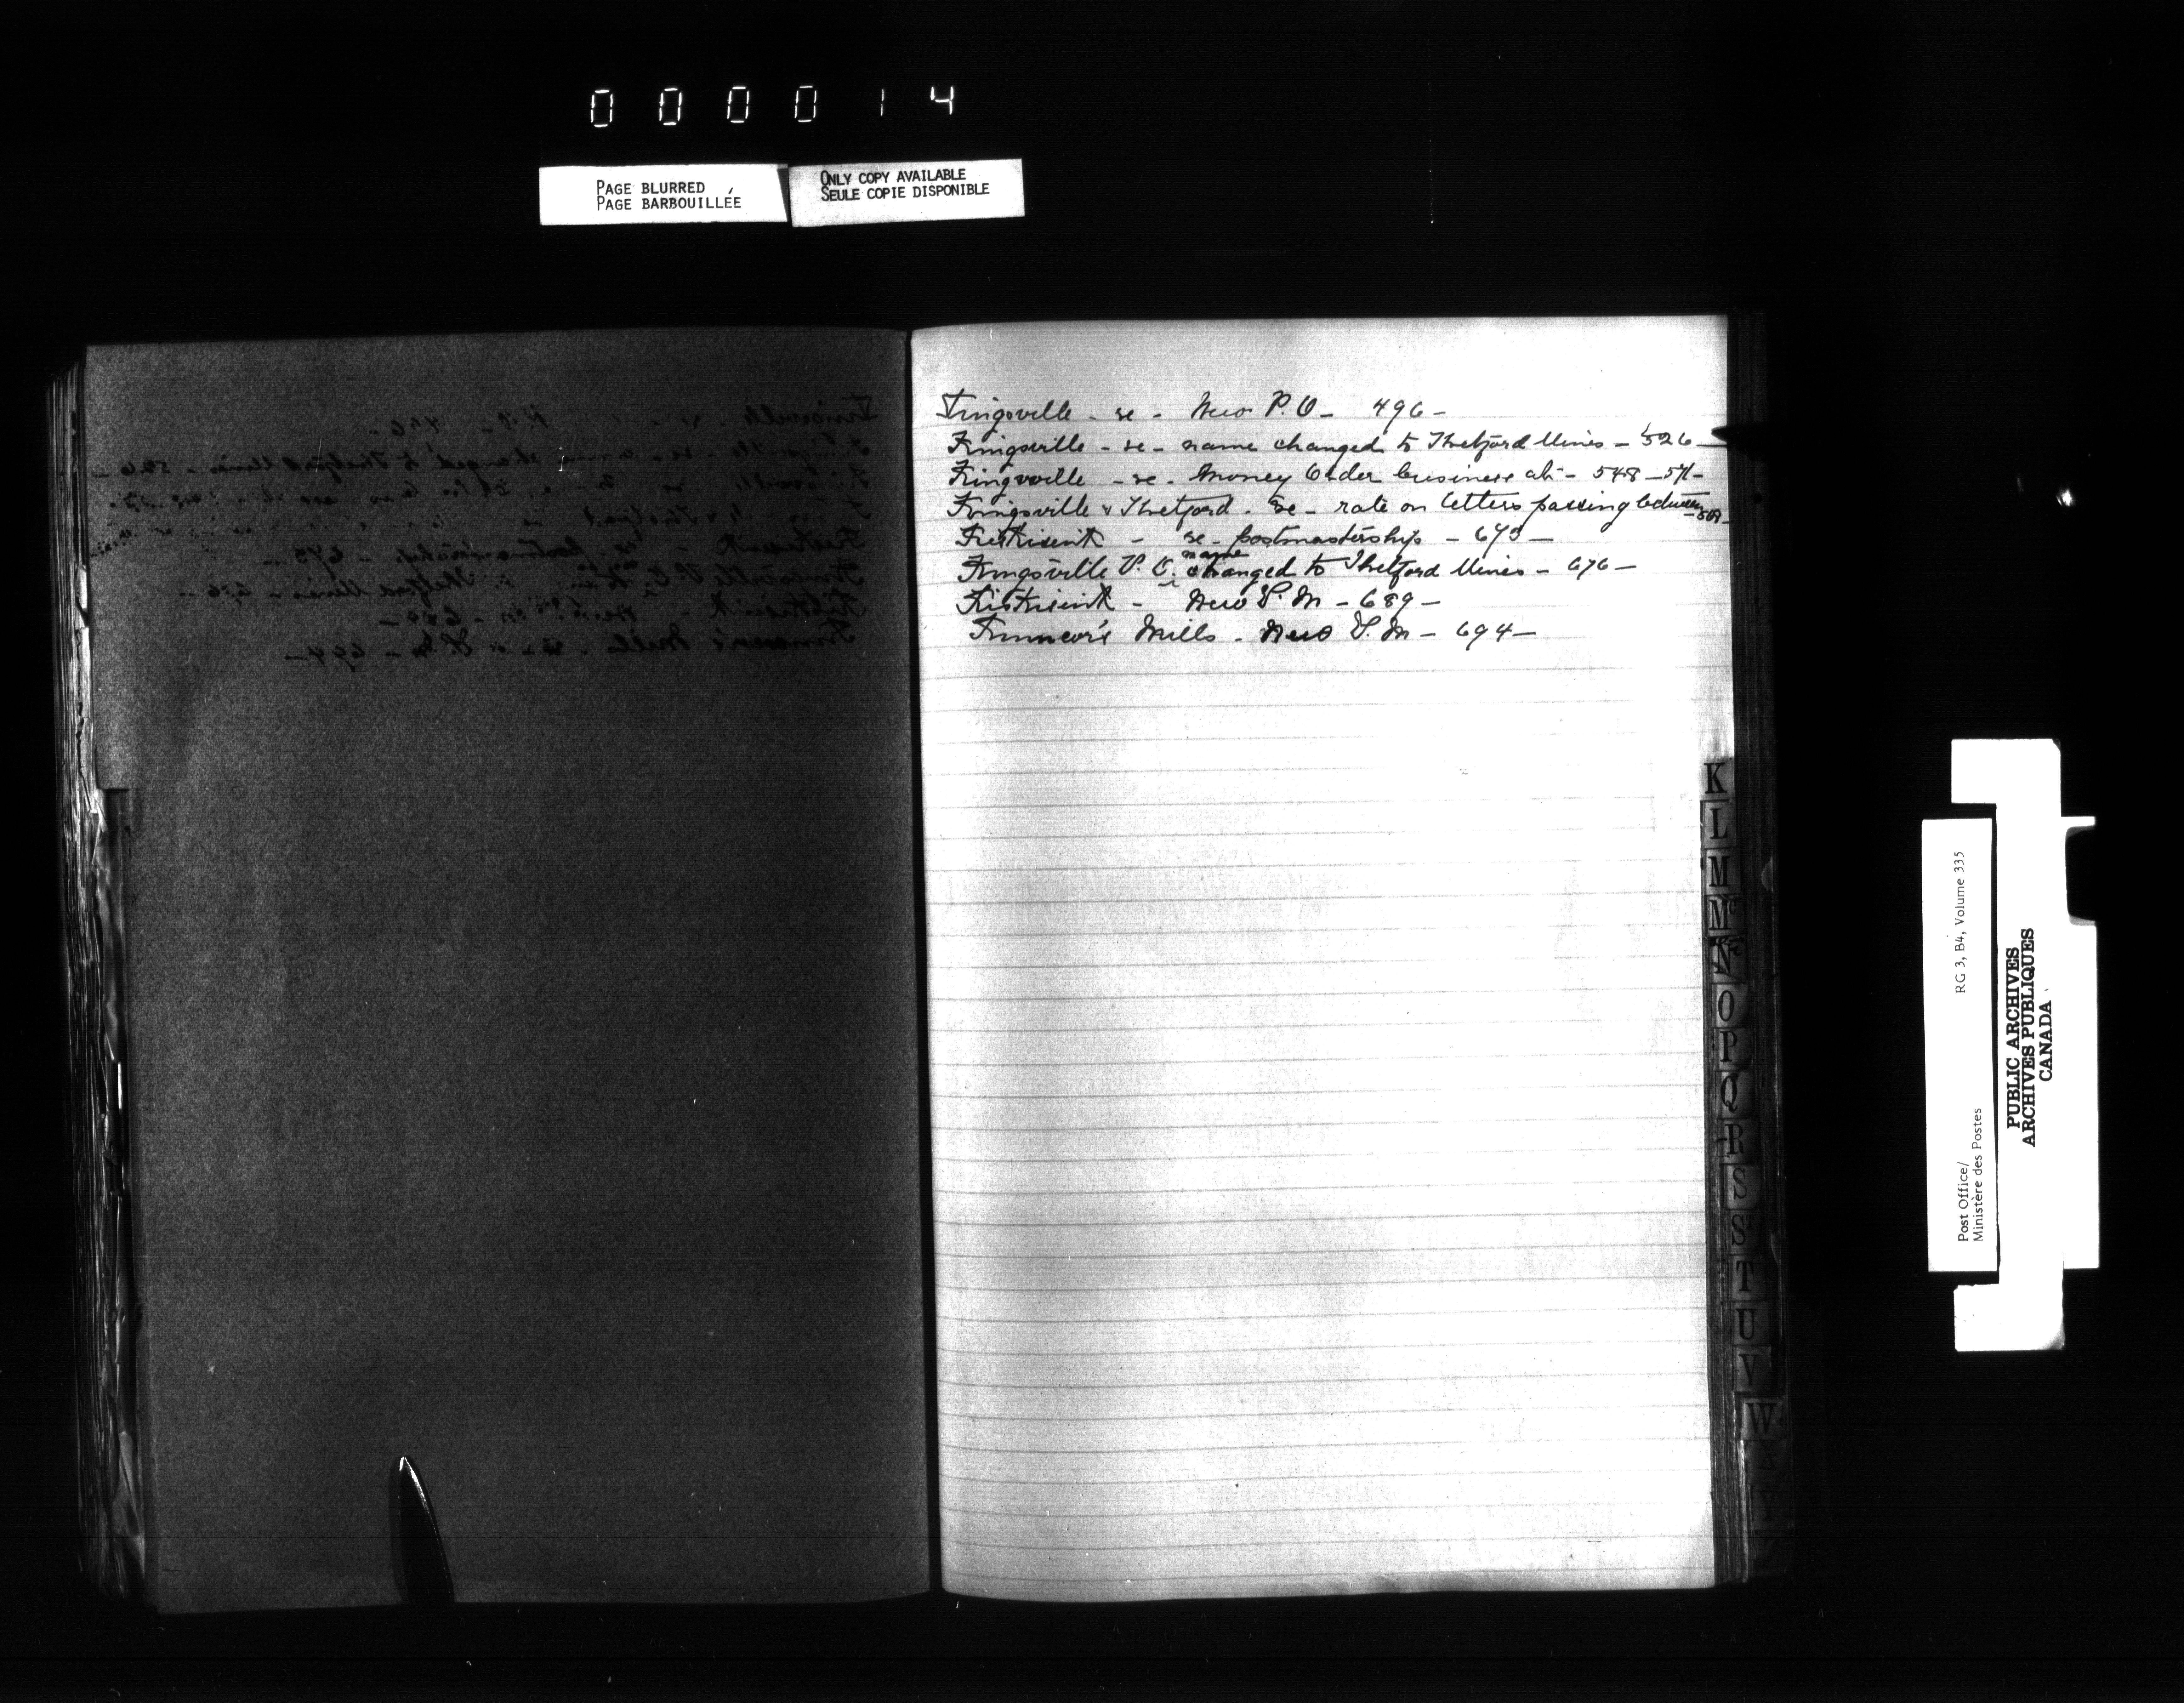 000014
PAGE BLURRED
PAGE BARBOUILLÉE
ONLY COPY AVAILABLE
SEULE COPIE DISPONIBLE
Kingsville - re - New P. O - 496 -
Kingsville - re - name changed to Thetford Mines - 526 -
Kingsville - re - Money Order business at - 548 - 571 -
Kingsville & Thetford - re - rate on letters passing between
- re - postmastership - 673 -
Kingsville P. O. name changed to Thetford Mines - 676 -
- New P. M - 689 -
Mills - New P. M - 694 -
K
L
M
Mc
N
O
P
Q
R
S
S
T
U
V
W
X
Y
Z
Post Office/
Ministère des Postes
RG 3, B4, Volume 335
PUBLIC ARCHIVES
ARCHIVES PUBLIQUES
CANADA